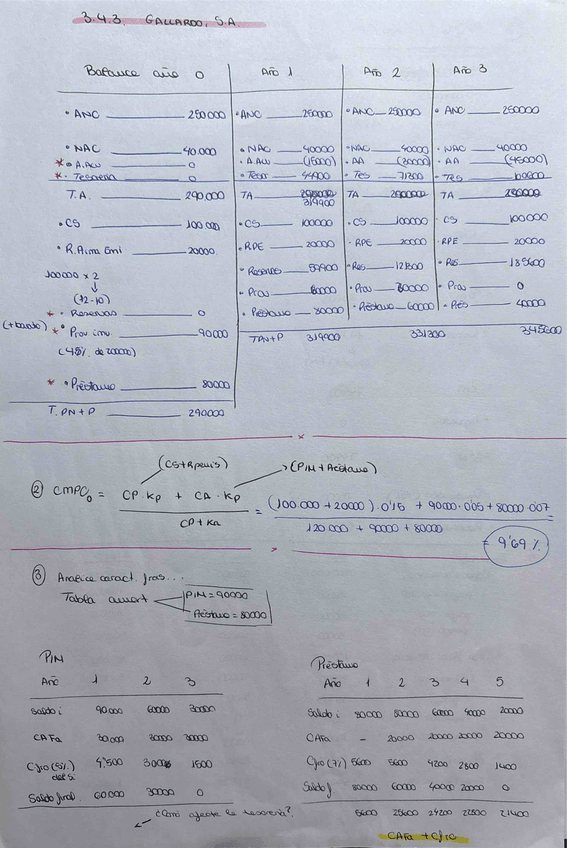 3.4.3. GALLARDO, S.A.
Balance año 0 Año 1 Año 2 Año 3
• ANC 250000 • ANC 250000 • ANC 250000 • ANC 250000
• NAC 40.000 • NAC 40000 • NAC 40000 • NAC 40000
* • A.Acu 0 • A.Acu (15000) • AA (30000) • AA (45000)
* • Tesorería 0 • Tesor 44900 • Tes 71300 • Tes
T.A. 290.000 TA 290000 TA 290000 TA 290000
319900
• CS 100.000 • CS 100000 • CS 100000 • CS 100000
• R. Prima Emi 20000 • RPE 20000 • RPE 20000 • RPE 20000
100000 x 2
↓
(12-10)
• Reservas 59900 • Res 121300 • Res 185600
* • Reservas 0 • Prov 60000 • Prov 30000 • Prov 0
(+ barato) * • Prov. inv. 90000 • Préstamo 80000 • Préstamo 60000 • Prés 40000
(45% de 200000) TPN+P 319900 331300 345600
* • Préstamo 80000
T. PN + P 290000
(CS+Rpemis) (PIN + Préstamo)
② CMPC0 = CP · Kp + CA · Kp / CP + Ka = (100.000 + 20000) · 0'15 + 90000 · 0'05 + 80000 · 0'07 / 120000 + 90000 + 80000 = 9'69 %
③ Analice caract. fras...
Tabla amort PIN = 90000
Préstamo = 80000
PIN
Año 1 2 3
Saldo i 90.000 60000 30000
CAFa 30.000 30000 30000
Cfro (5%) del Si 4'500 3000 1500
Saldo final 60.000 30000 0
¿Cómo afecta la tesorería?
Préstamo
Año 1 2 3 4 5
Saldo i 80000 80000 60000 40000 20000
CAFa - 20000 20000 20000 20000
Cfro (7%) 5600 5600 4200 2800 1400
Saldo f 80000 60000 40000 20000 0
5600 25600 24200 22800 21400
CAFa + Cfro